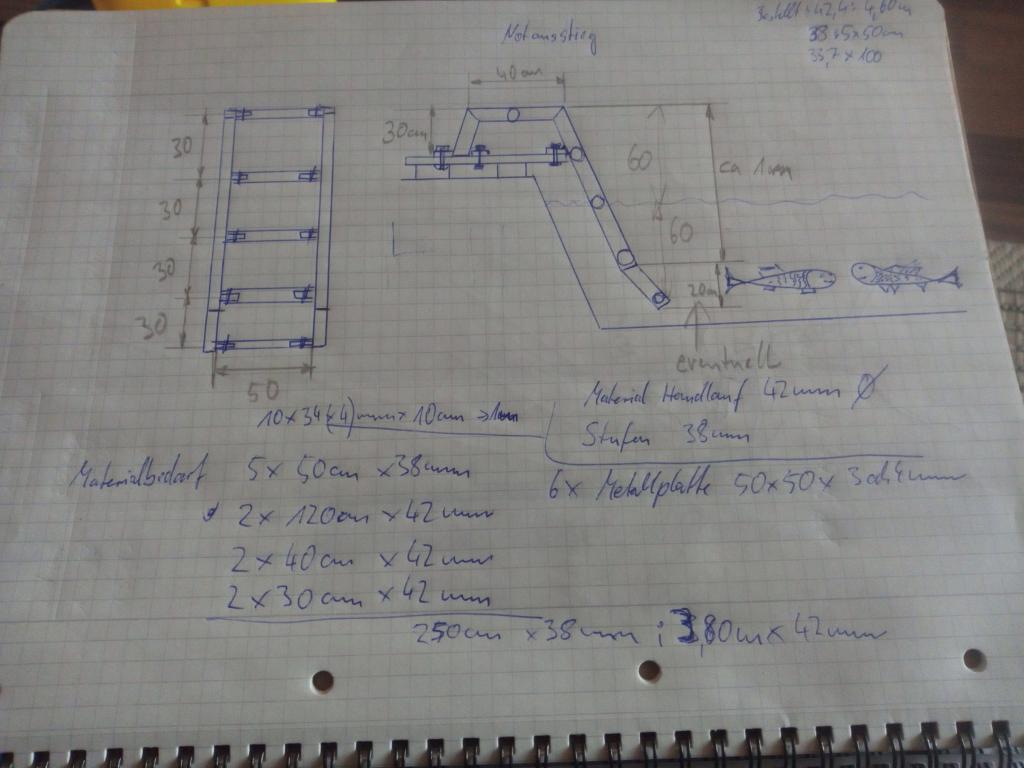 Bestellt: 42,4: 4,60m
38: 5x50cm
33,7 x 100
Notausstieg
40cm
30cm
30
30
30
30
50
60
60
ca 1m
20cm
eventuell
10 x 34(x4)mm x 10cm → 1m
Material Handlauf 42mm Ø
Stufen 38mm
Materialbedarf 5 x 50cm x 38mm
6x Metallplatte 50x50x 3 od 4mm
2 x 120cm x 42mm
2 x 40cm x 42mm
2 x 30cm x 42mm
250cm x 38mm ; 3,80m x 42mm